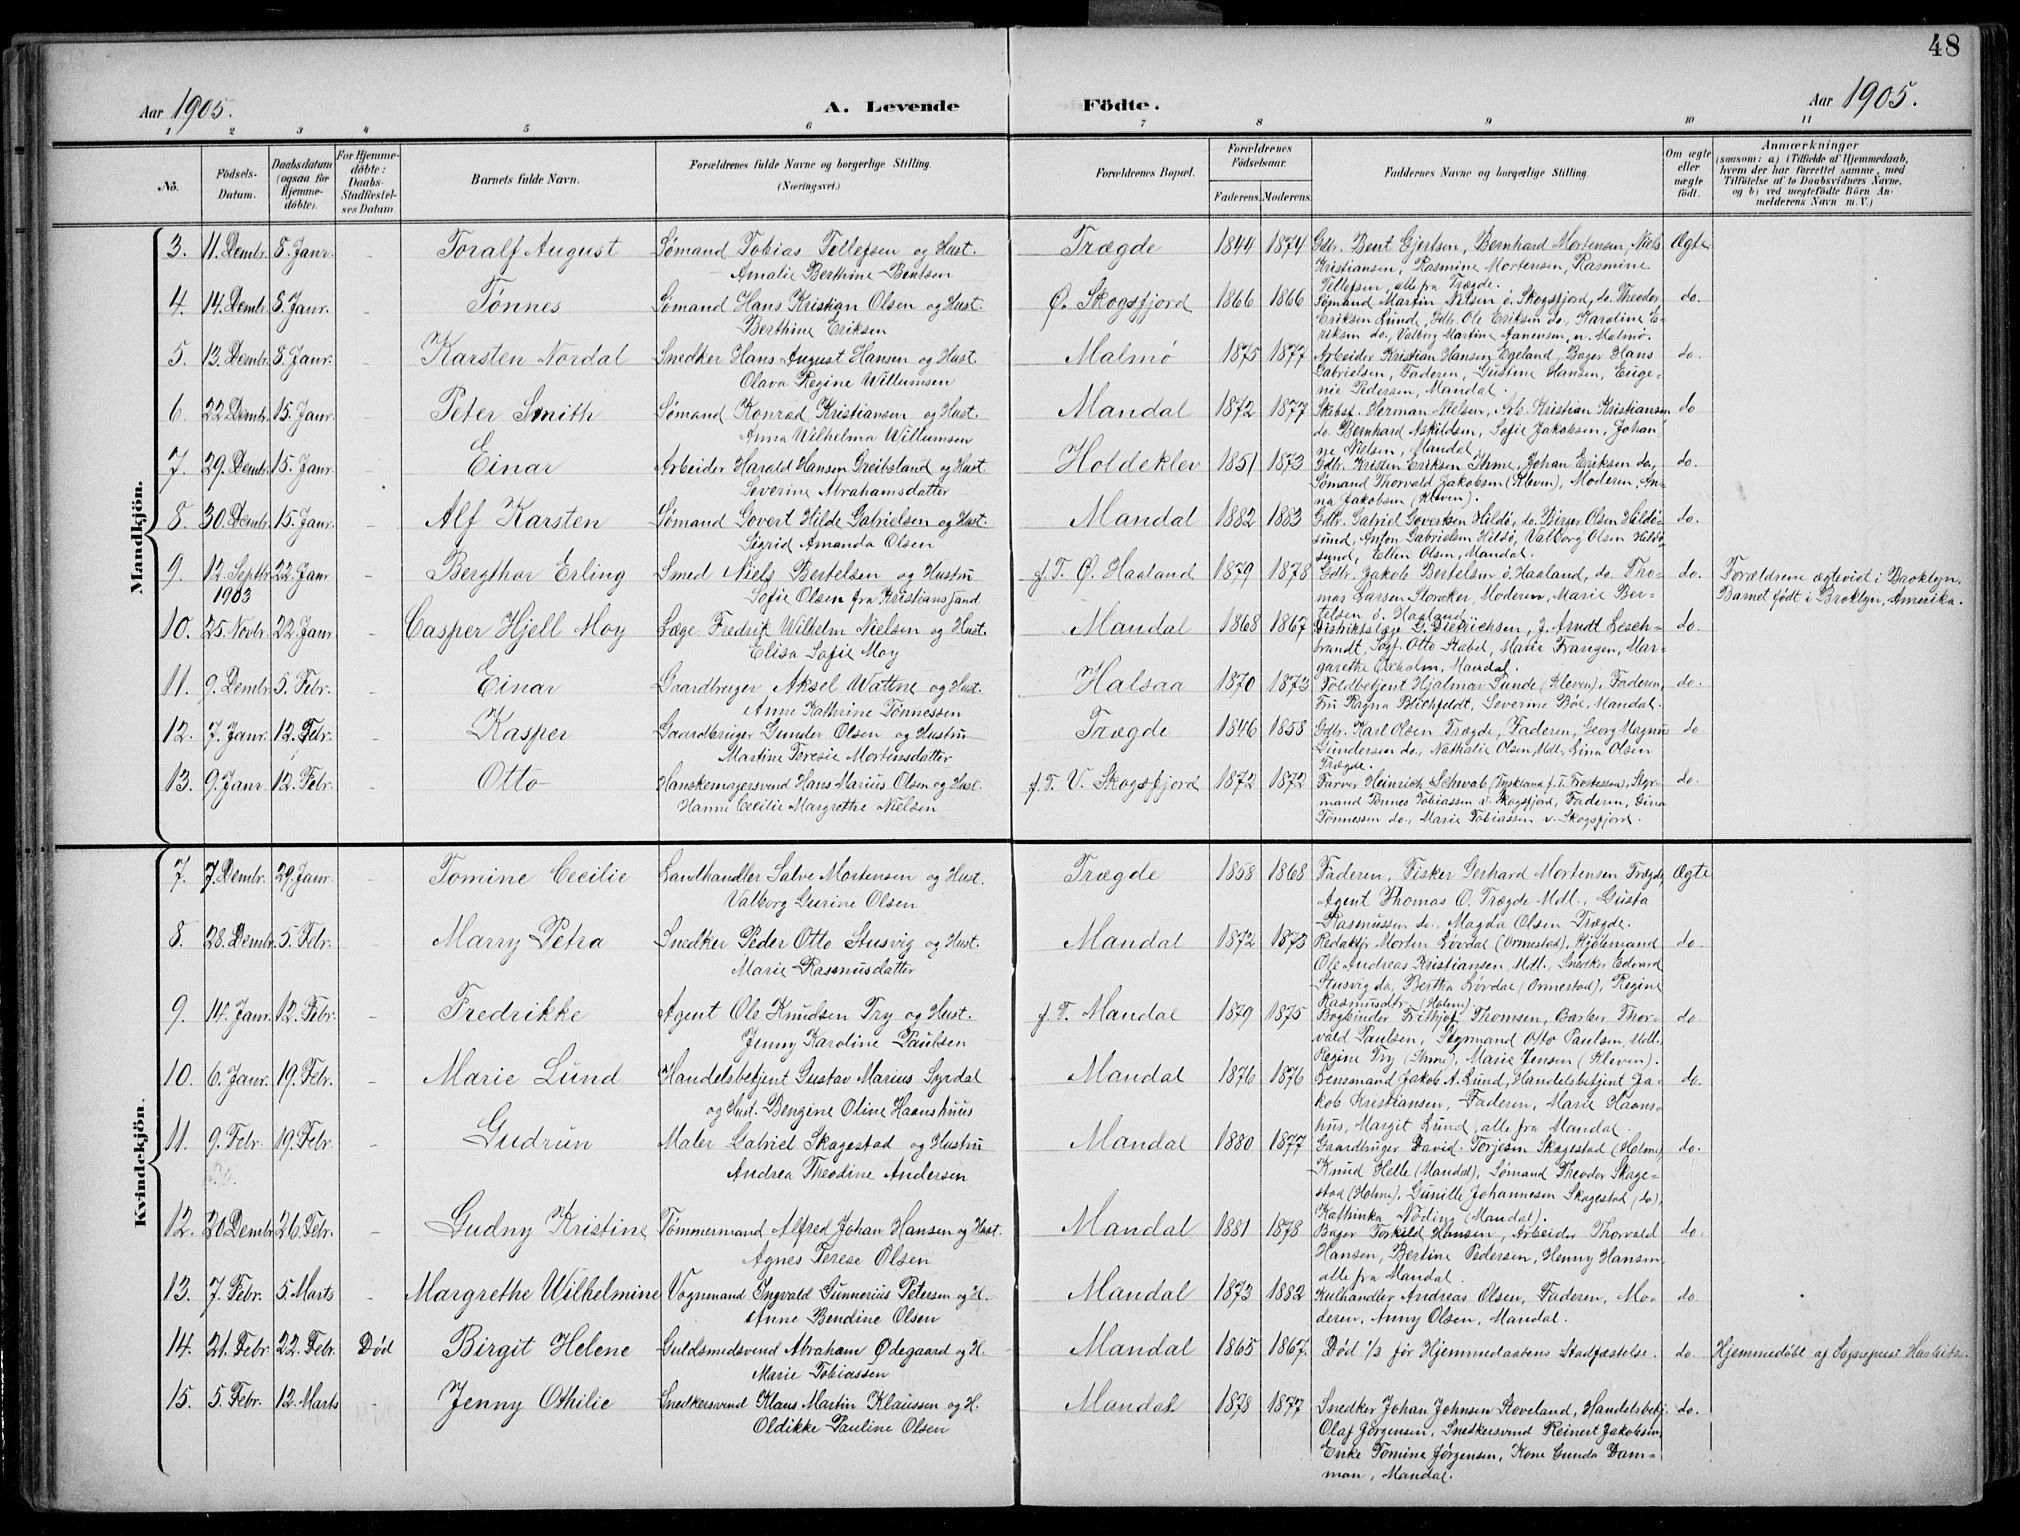 48
Aar 1905. A. Levende Födte. Aar 1905.
1 2 3 4 5 6 7 8 9 10 11
No. Födsels-Datum. Daabsdatum (ogsaa for Hjemmedöbte). For Hjemmedöbte: Daabs-Stadfæstelses Datum. Barnets fulde Navn. Forældrenes fulde Navne og borgerlige Stilling. (Næringsvei.) Forældrenes Bopæl. Forældrenes Födselsaar. Faderens. Moderens. Faddernes Navne og borgerlige Stilling. Om ægte eller uægte födt. Anmærkninger
(saasom: a) i Tilfælde af Hjemmedaab, hvem der har forrettet samme, med Tilföielse af to Daabsvidners Navne, og b) ved uægtefödte Börn Anmelderens Navn m. V.)
Mandkjön.
3. 11. Dembr. 8. Janr. - Toralf August Sømand Tobias Tellefsen og Hust. Trægde 1844 1874 Gdbr. Bent Gjertsen, Bernhard Mortensen, Niels Ægte
Amalie Berthine Bentsen Kristiansen, Rasmine Mortensen, Rasmine
Tellefsen, alle fra Trægde.
4. 14. Dembr. 8. Janr. - Tønnes Sømand Hans Kristian Olsen og Hust. Ø. Skogsfjord 1866 1866 Sømand Martin Nilsen ö. Skogsfjord, do. Theodor do.
Berthine Eriksen Eriksen Lunde, Gdbr. Ole Eriksen do., Karoline E-
riksen do., Valborg Martine Aanensen, n. Malmø.
5. 13. Dembr. 8. Janr. - Karsten Nordal Snedker Hans August Hansen og Hust. Malmø 1875 1877 Arbeider Kristian Hansen Egeland, Bager Hans do.
Olava Regine Willumsen Gabrielsen, Faderen, Gustine Hansen, Euge-
nie Pedersen, Mandal.
6. 22. Dembr. 15. Janr. - Peter Smith Sømand Konrad Kristiansen og Hust. Mandal 1872 1877 Skibsf. Herman Nielsen, Arb. Kristian Kristiansen do
Anna Wilhelma Willumsen do. Bernhard Askildsen, Sofie Jakobsen, Johan
ne Nielsen, Mandal.
7. 29. Dembr. 15. Janr. - Einar Arbeider Harald Hansen Greibsland og Hust. Holdeklev 1851 1873 Gdbr. Kristen Eriksen Ihme, Johan Eriksen do., do.
Severine Abrahamsdatter Sømand Thorvald Jakobsen (Kleven), Moderen, An-
na Jakobsen (Kleven).
8. 30. Dembr. 15. Janr. - Alf Karsten Sømand Govert Hilde Gabrielsen og Hust. Mandal 1882 1883 Gdbr. Gabriel Govertsen Hildø, do. Birger Olsen Hildø- do.
Sigrid Amanda Olsen sund, Anton Gabrielsen Hildø, Valborg Olsen Hildø-
sund, Ellen Olsen, Mandal.
9. 12. Septbr. 22. Janr - Bergthor Erling Smed Niels Bertelsen og Hustru f. T. Ø. Haaland 1879 1878 Gdbr. Jakob Bertelsen ö. Haaland, do. Tho- do. Forældrene ægteviet i Broklyn,
1903 Sofie Olsen fra Kristianssand mas Larsen Storaker, Moderen, Marie Ber- Barnet født i Broklyn, Amerika.
telsen ö. Haaland.
10. 25. Novbr. 22. Janr - Casper Hjell Moy Læge Fredrik Wilhelm Nielsen og Hust. Mandal 1868 1867 Distriktslæge G. Dietrichsen, J. Arndt Lesch- do.
Elisa Sofie Moy brandt, Sagf. Otto Stabel, Marie Frangen, Mar-
garethe Oxholm, Mandal.
11. 9. Dembr. 5. Febr. - Einar Gaardbruger Aksel Wattne og Hust. Halsaa 1870 1873 Toldbetjent Hjalmar Lunde (Kleven), Faderen, do.
Anne Kathrine Tønnessen Fru Ragna Blichfeldt, Severine Bøe, Mandal.
12. 7. Janr. 12. Febr. - Kasper Gaardbruger Gunder Olsen og Hustru Trægde 1846 1858 Gdbr. Karl Olsen Trægde, Faderen, Georg Magnus do
Martine Teresie Mortensdatter Gundersen do., Nathalie Olsen, Mdl. Lina Olsen
Trægde.
13. 9. Janr. 12. Febr. - Otto Hanskemagersvend Hans Marius Olsen og Hust. f. T. V. Skogsfjord 1872 1872 Farver Heinrich Schwab f. T. Styr- do.
Hanne Cecilie Margrethe Nielsen mand Tønnes Tobiassen v. Skogsfjord, Faderen, Dina
Tønnessen do., Marie Tobiassen v. Skogsfjord.
Kvindekjön.
7. 7. Dembr. 29. Janr. - Tomine Cecilie Landhandler Salve Mortensen og Hust. Trægde 1858 1868 Faderen, Fisker Gerhard Mortensen Trægde, Ægte
Valborg Gurine Olsen Agent Thomas O. Trægde Mdl., Gusta
Rasmussen do., Magda Olsen Trægde.
8. 28. Dembr. 5. Febr. - Marry Petra Snedker Peder Otto Stusvig og Hust. Mandal 1872 1873 Redaktør Morten Løvdal (Ormestad), Styrmand do.
Marie Rasmusdatter Ole Andreas Kristiansen, Mdl., Snedker Edvard
Stusvig do., Bertha Løvdal (Ormestad), Regine
Rasmusdtr. (Holme).
9. 14. Janr. 12. Febr. - Fredrikke Agent Ole Knudsen Try og Hust. f. T. Mandal 1879 1875 Bogbinder Frithjof Thomsen, Barber Thor- do.
Jenny Karoline Paulsen vald Paulsen, Styrmand Otto Paulsen, Mdl.
Regine Try (Ihme), Marie Jensen (Kleven).
10. 6. Janr. 19. Febr. - Marie Lund Handelsbetjent Gustav Marius Syrdal Mandal 1876 1876 Lensmand Jakob A. Lund, Handelsbetjent Ja- do.
og Hust. Bengine Oline Haanshuus kob Kristiansen, Faderen, Marie Haans-
hus, Margit Lund, alle fra Mandal.
11. 9. Febr. 19. Febr. - Gudrun Maler Gabriel Skagestad og Hustru Mandal 1880 1877 Gaardbruger David Torjesen Skagestad (Holme), do.
Andrea Theodine Andersen Knud Helle (Mandal), Sømand Theodor Skage-
stad (Holme), Gunille Johannesen Skagestad (do),
Kathinka Nøding (Mandal).
12. 20. Dembr. 26. Febr. - Gudny Kristine Tømmermand Alfred Johan Hansen og Hust. Mandal 1881 1878 Bager Torkild Hansen, Arbeider Thorvald do.
Agnes Terese Olsen Hansen, Bertine Pedersen, Henny Hansen,
alle fra Mandal.
13. 7. Febr. 5. Marts - Margrethe Wilhelmine Vognmand Ingvald Gunnerius Petersen og H. Mandal 1873 1882 Kulhandler Andreas Olsen, Faderen, Mo- do.
Anne Bendine Olsen deren, Anny Olsen, Mandal.
14. 21. Febr. 22. Febr. Død Birgit Helene Guldsmedsvend Abraham Ødegaard og H. Mandal 1865 1867. Død 1/3 før Hjemmedaabens Stadfæstelse. do. Hjemmedøbt af Sogneprest
Marie Tobiassen
15. 5. Febr. 12. Marts - Jenny Othilie Snedkersvend Klaus Martin Klaussen og H. Mandal 1878 1877 Snedker Johan Johnsen Stoveland, Handelsbetj. do.
Oldikke Pauline Olsen Olaf Jørgensen, Snedkersvend Reinert Jakobsen,
Enke Tomine Jørgensen, Kone Gunda Dam-
man, Mandal.